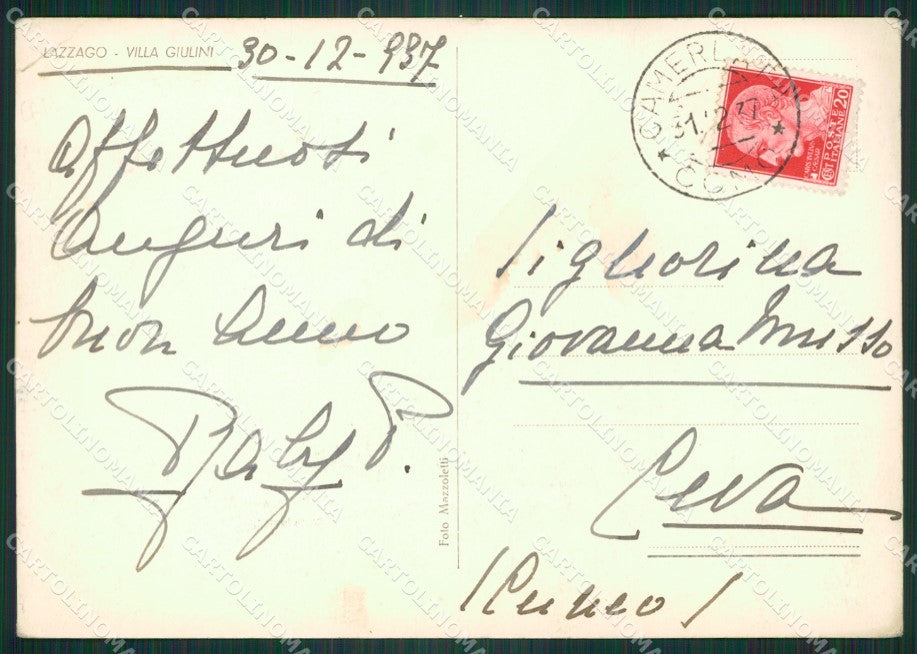 LAZZAGO - VILLA GIULINI 30-12-937
Affettuosi
Auguri di
buon anno
CAMERLATA
31.12.37
COMO
POSTE ITALIANE
CENT 20
Signorina
Giovanna Musso
Ceva
(Cuneo)
Foto Mazzoletti
CARTOLINOMANIA